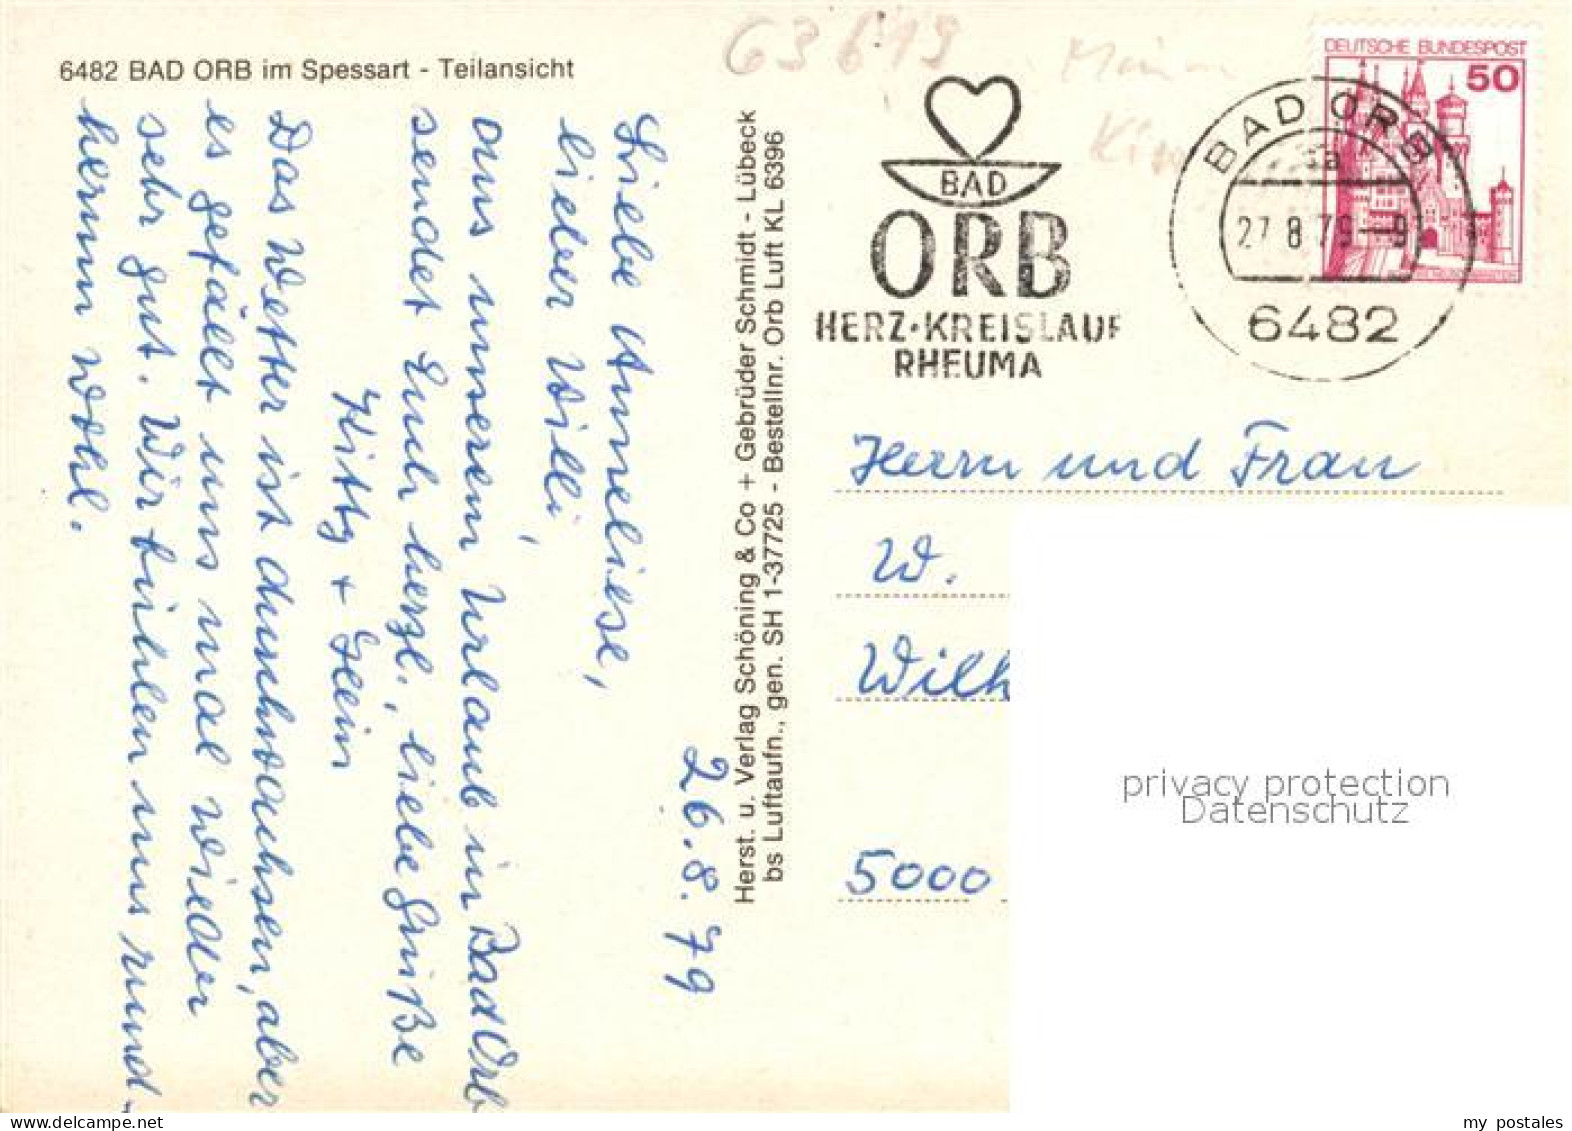 6482 BAD ORB im Spessart - Teilansicht
26.8.79
Liebe Anneliese,
lieber Willi,
aus unserem Urlaub in Bad Orb
sendet Euch herzl., liebe Grüße
Kitty +
Das Wetter ist durchwachsen, aber
es gefällt uns mal wieder
sehr gut. Wir fühlen uns rund-
herum wohl.
Herst. u. Verlag Schöning & Co + Gebrüder Schmidt - Lübeck
bs Luftaufn., gen. SH 1-37725 - Bestellnr. Orb Luft KL 6396
63619
BAD
ORB
HERZ·KREISLAUF
RHEUMA
BAD ORB
27.8.79-9
6482
DEUTSCHE BUNDESPOST
50
Herrn und Frau
W.
Wilh
5000
privacy protection
Datenschutz
my postales